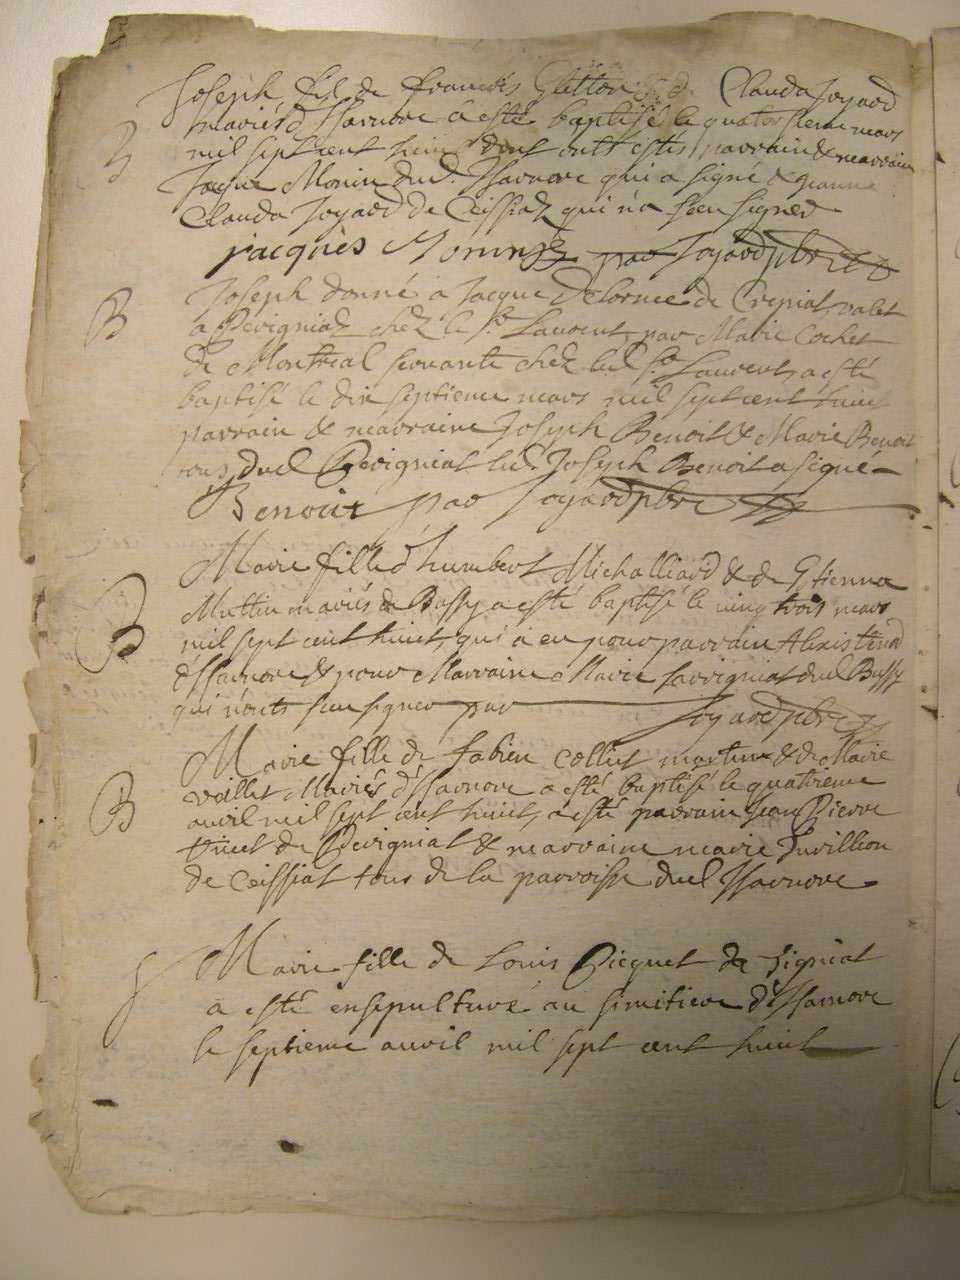 Joseph fil de francois Guitton & d. Clauda Joyard
mariés d'Isarnore a esté baptisé le quatorsieme mars
mil sept cent huit dont onts estés parrain & marraine
Jaque Monin dud. Isarnore qui a signé & jeanne
Clauda Joyard de Ceissiat qui n'a sceu signer
jacques Monin par Joyard pbre
B Joseph donné a Jacque Delorme de Crepiat, valet
a Pevigniat chez le sr. Laurent, par Marie Cochet
de Montreal servante chez led. sr. Laurent, a esté
baptisé le dix septieme mars mil sept cent huict
parrain & marraine Joseph Benoit & Marie Benoit
tous dud Pevigniat led. Joseph Benoit a signé
Benoit par Joyard pbre
B Marie fille d'humbert Michalliard & de Etienna
Mattin mariés de Bussy a esté baptisé le ving trois mars
mil sept cent huict, qui a eu pour parrain Alexis
d'Isarnore & pour Marraine Marie savigniat dud Bussy
qui n'onts sceu signer par Joyard pbre
B Marie fille de fabien Collet & de Marie
Veillet Mariés d'Isarnore a esté baptisé le quatrieme
avril mil sept cent huict, a esté parrain Jean Pierre
de Pevigniat & marraine marie Juvillion
de Ceissiat tous de la parroisse dud Isarnore
S Marie fille de Louis Picquet de Signiat
a esté ensepulturé au simitiere d'Isarnore
le septieme avril mil sept cent huict